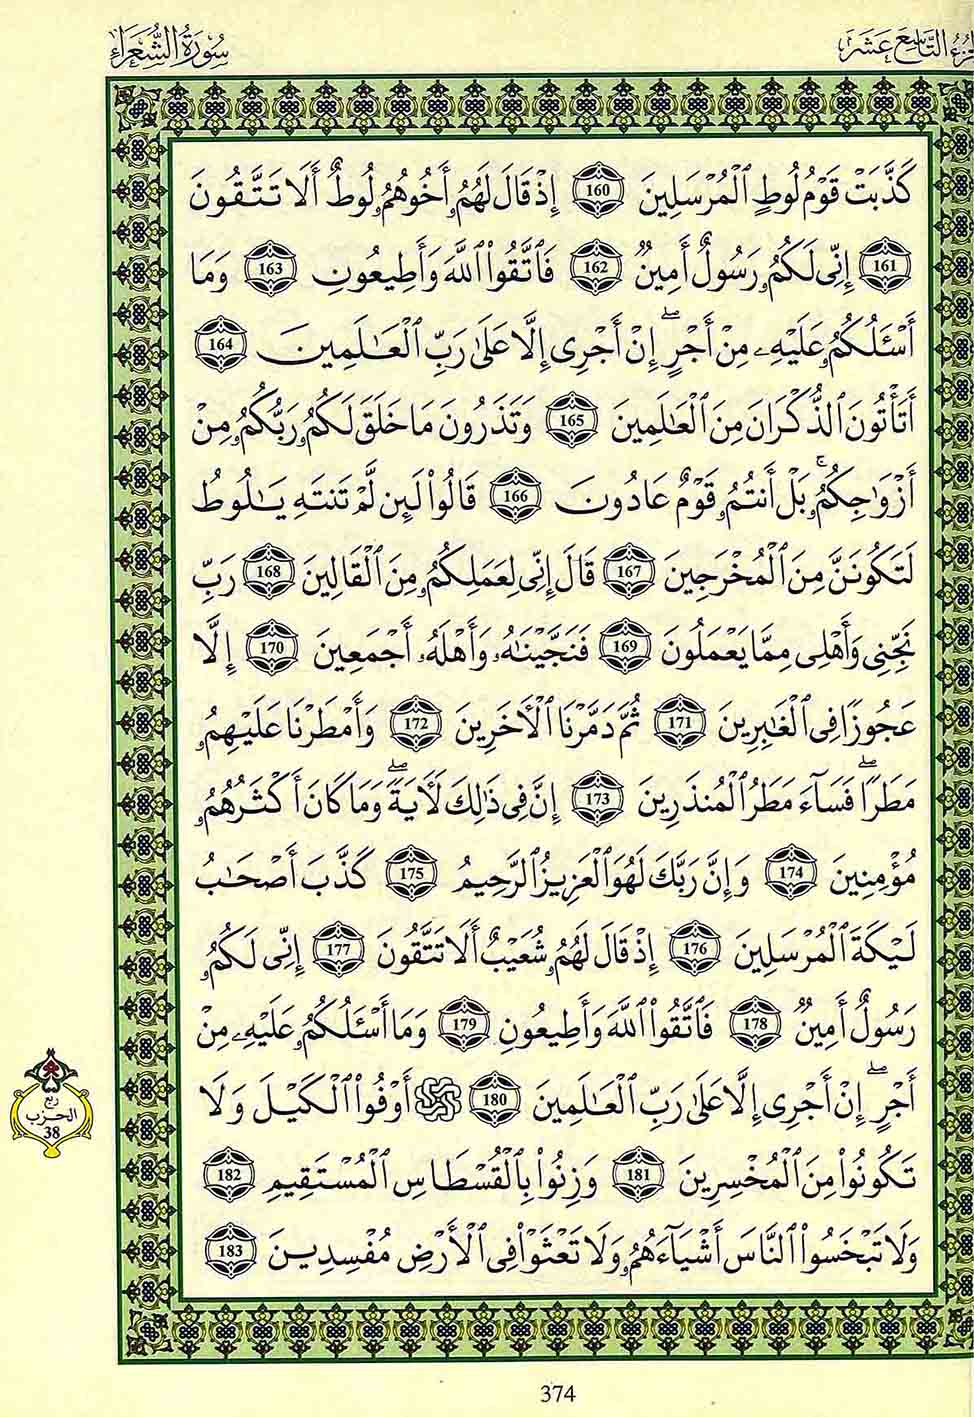 الجزء التاسع عشر
سورة الشعراء
كَذَّبَتْ قَوْمُ لُوطٍ ٱلْمُرْسَلِينَ 160 إِذْ قَالَ لَهُمُۥ أَخُوهُمُۥ لُوطٌ أَلَا تَتَّقُونَ
161 إِنِّى لَكُمُۥ رَسُولٌ أَمِينٌ 162 فَٱتَّقُوا۟ ٱللَّهَ وَأَطِيعُونِ 163 وَمَا
أَسْـَٔلُكُمُۥ عَلَيْهِۦ مِنْ أَجْرٍ ۖ إِنْ أَجْرِى إِلَّا عَلَىٰ رَبِّ ٱلْعَـٰلَمِينَ 164
أَتَأْتُونَ ٱلذُّكْرَانَ مِنَ ٱلْعَـٰلَمِينَ 165 وَتَذَرُونَ مَا خَلَقَ لَكُمُۥ رَبُّكُمُۥ مِنْ
أَزْوَٰجِكُمُۥ ۚ بَلْ أَنتُمُۥ قَوْمٌ عَادُونَ 166 قَالُوا۟ لَئِن لَّمْ تَنتَهِ يَـٰلُوطُ
لَتَكُونَنَّ مِنَ ٱلْمُخْرَجِينَ 167 قَالَ إِنِّى لِعَمَلِكُمُۥ مِنَ ٱلْقَالِينَ 168 رَبِّ
نَجِّنِى وَأَهْلِى مِمَّا يَعْمَلُونَ 169 فَنَجَّيْنَـٰهُۥ وَأَهْلَهُۥ أَجْمَعِينَ 170 إِلَّا
عَجُوزًا فِى ٱلْغَـٰبِرِينَ 171 ثُمَّ دَمَّرْنَا ٱلْأَخَرِينَ 172 وَأَمْطَرْنَا عَلَيْهِمُۥ
مَطَرًا ۖ فَسَآءَ مَطَرُ ٱلْمُنذَرِينَ 173 إِنَّ فِى ذَٰلِكَ لَأَيَةً ۖ وَمَا كَانَ أَكْثَرُهُمُۥ
مُؤْمِنِينَ 174 وَإِنَّ رَبَّكَ لَهُوَ ٱلْعَزِيزُ ٱلرَّحِيمُ 175 كَذَّبَ أَصْحَـٰبُ
لَيْكَةَ ٱلْمُرْسَلِينَ 176 إِذْ قَالَ لَهُمُۥ شُعَيْبٌ أَلَا تَتَّقُونَ 177 إِنِّى لَكُمُۥ
رَسُولٌ أَمِينٌ 178 فَٱتَّقُوا۟ ٱللَّهَ وَأَطِيعُونِ 179 وَمَا أَسْـَٔلُكُمُۥ عَلَيْهِۦ مِنْ
أَجْرٍ ۖ إِنْ أَجْرِى إِلَّا عَلَىٰ رَبِّ ٱلْعَـٰلَمِينَ 180 ۞ أَوْفُوا۟ ٱلْكَيْلَ وَلَا
تَكُونُوا۟ مِنَ ٱلْمُخْسِرِينَ 181 وَزِنُوا۟ بِٱلْقُسْطَاسِ ٱلْمُسْتَقِيمِ 182
وَلَا تَبْخَسُوا۟ ٱلنَّاسَ أَشْيَآءَهُمُۥ وَلَا تَعْثَوْا۟ فِى ٱلْأَرْضِ مُفْسِدِينَ 183
ربع
الحزب
38
374